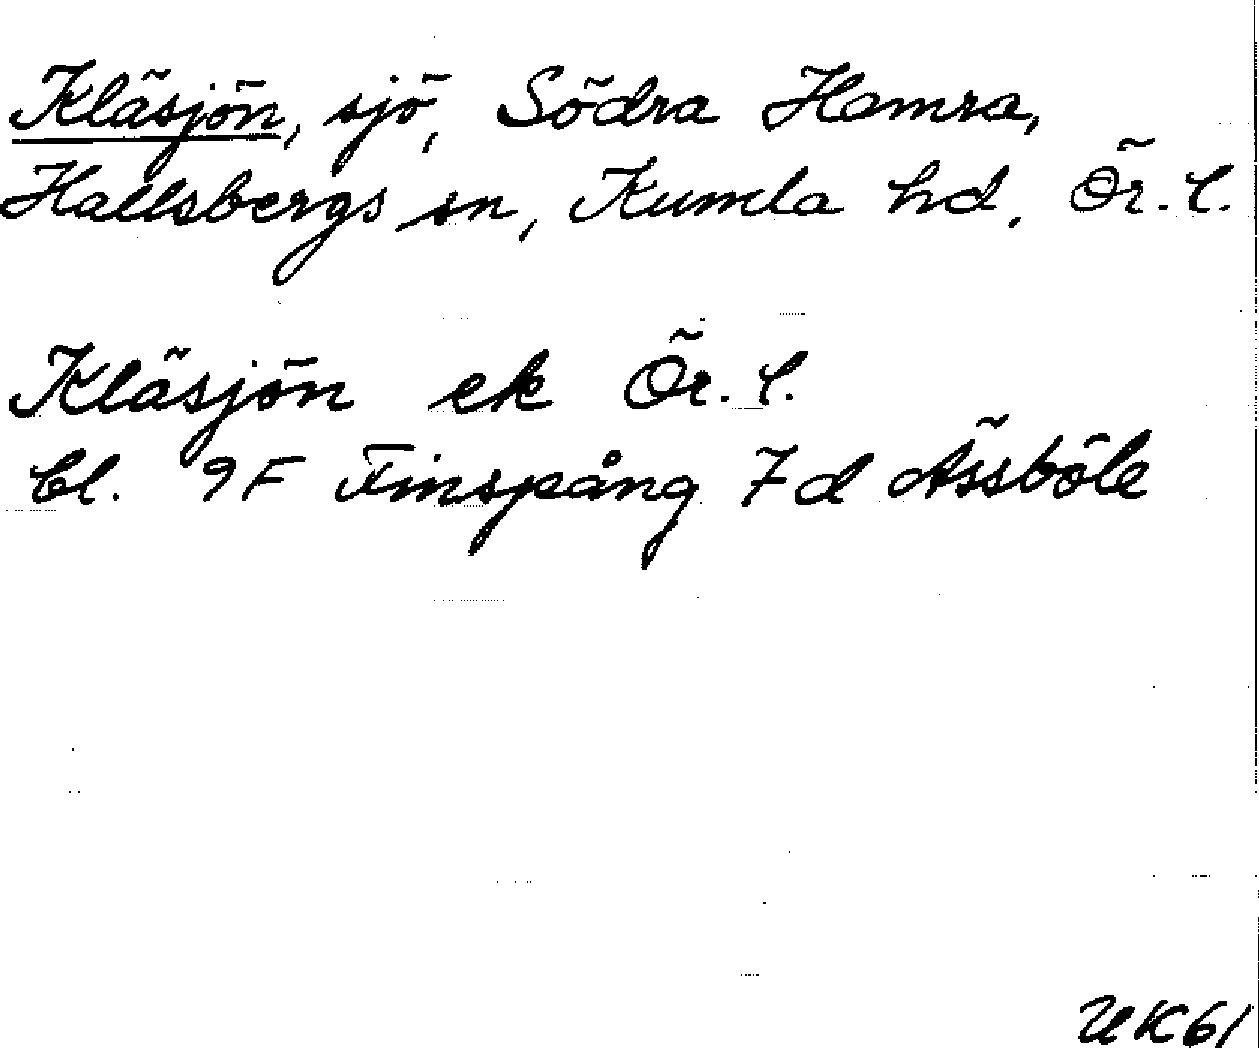 Kläsjön, sjö, Södra Hamra,
Hallsbergs sn, Kumla hd, Ör. l.
Kläsjön ek Ör. l.
bl. 9F Finspång 7d Åssböle
UK61